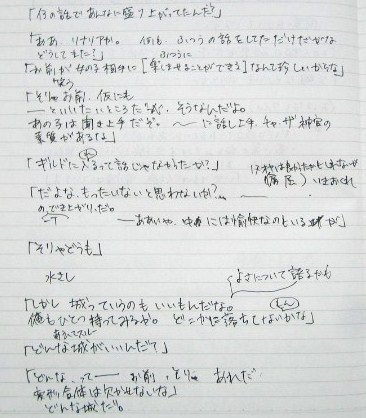 「何の話であんなに盛り上がってたんだ?」
「ああ、リナリアか。何も、ふつうの話をしてただけだがな
どうしてまた?」
ふつうに
「お前が女の子相手に[楽しませることができる]なんて珍しいからな」
笑う
「そりゃお前、仮にも
―といいたいところだが、そうなんだよ。
あの子は聞き上手だぞ。～に話し上手、チャ・ザ神官の
素質があるな」
「ギルドに入るって話じゃなかったか?」
「だよな、もったいないと思わないか?…
のでき上がりだ。
―ああいや、中には愉快なのもいる
「そりゃどうも」
水さし
よさについて語るかも
「しかし 城っていうのもいいもんだな。
俺もひとつ持ってみるか。どこかに落ちてないかな」
もん
「どんな城がいいんだ?」
「どんな、って―お前、そりゃ あれだ
変形合体は欠かせないな」
どんな城だ。